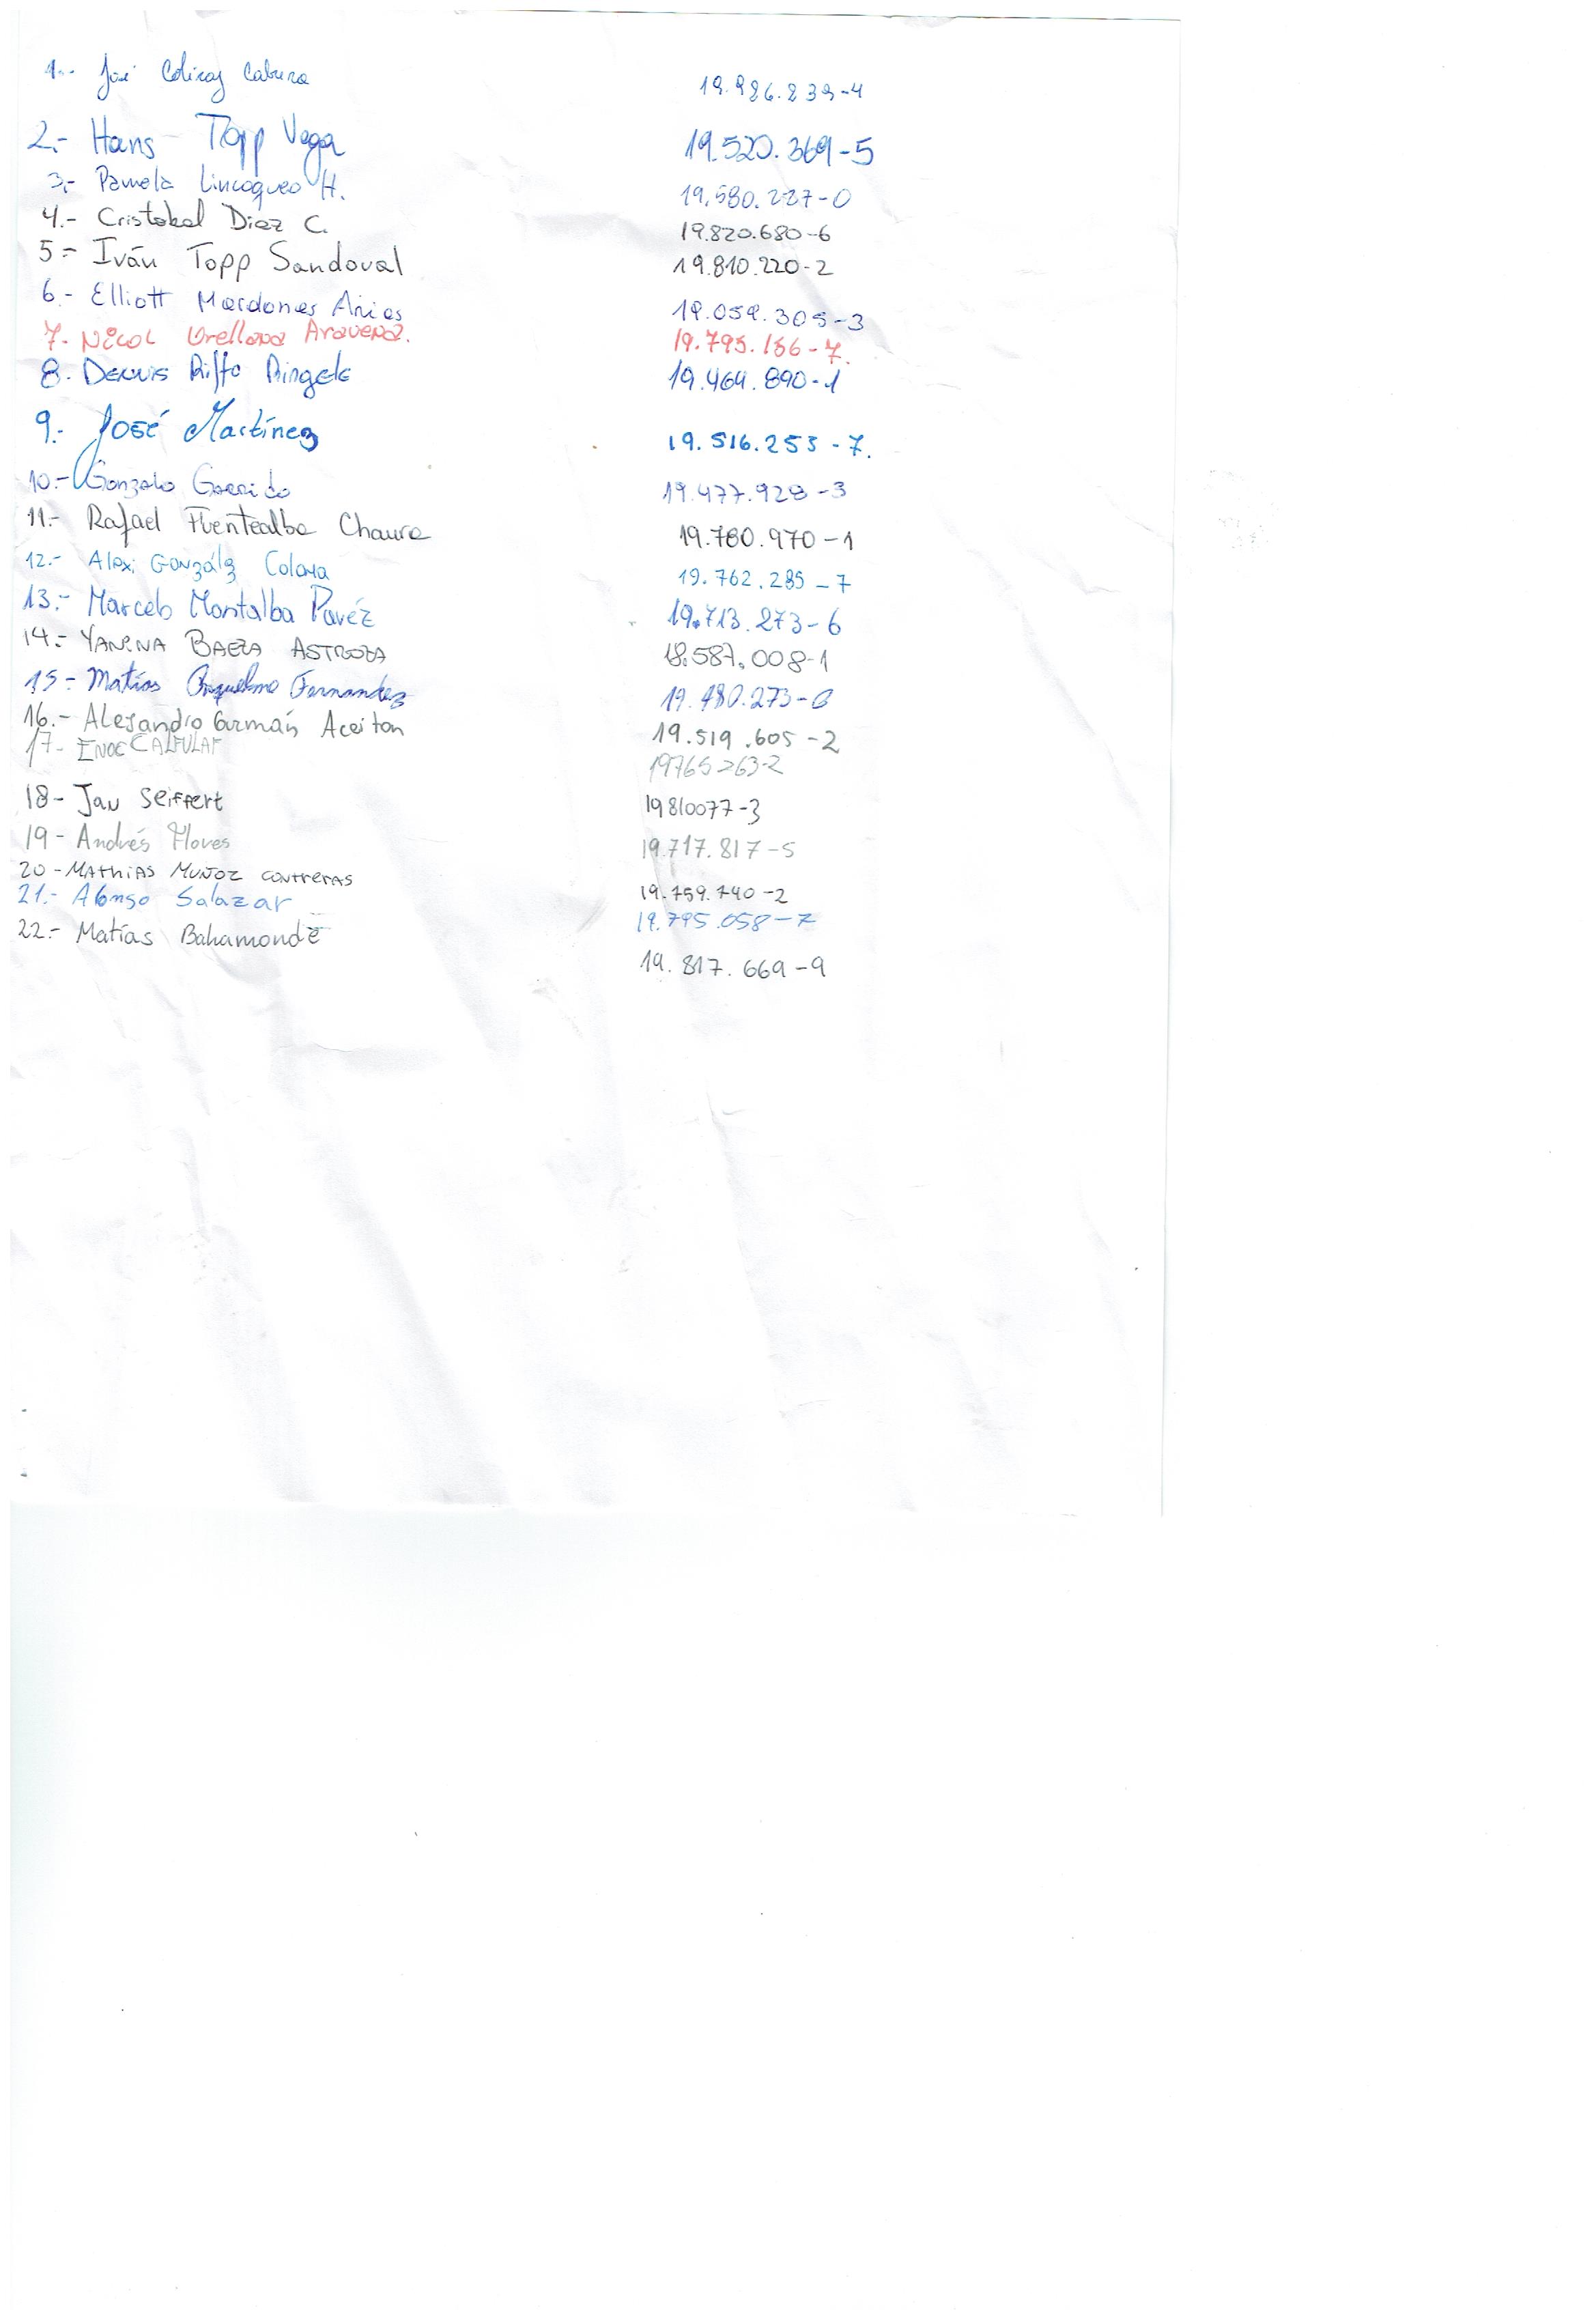 1.- José Colicoy Cabrera 19.986.239-4
2.- Hans Topp Vega 19.520.369-5
3.- Pamela Lincoqueo H. 19.580.227-0
4.- Cristobal Diaz C. 19.820.680-6
5.- Iván Topp Sandoval 19.810.220-2
6.- Elliott Mardones Arias 19.059.305-3
7.- Nicol Orellana Aravena. 19.795.156-7.
8. Dennis Riffo Ringele 19.464.890-1
9.- José Martínez 19.516.253-7.
10.- Gonzalo Garrido 19.477.928-3
11.- Rafael Fuentealba Chaura 19.760.970-1
12.- Alexi González Coloma 19.762.285-7
13.- Marcelo Montalba Pavéz 19.713.273-6
14.- YANINA BAEZA ASTROZA 18.587.008-1
15.- Matías Fernandez 19.480.273-0
16.- Alejandro Guzmán Aceiton 19.519.605-2
17- ENOC CALFULAF 19765263-2
18- Jan Seiffert 19810077-3
19- Andrés Flores 19.717.817-5
20- MATHIAS MUÑOZ CONTRERAS 19.759.740-2
21.- Alonso Salazar 19.795.058-7
22.- Matías Bahamonde 19.817.669-9